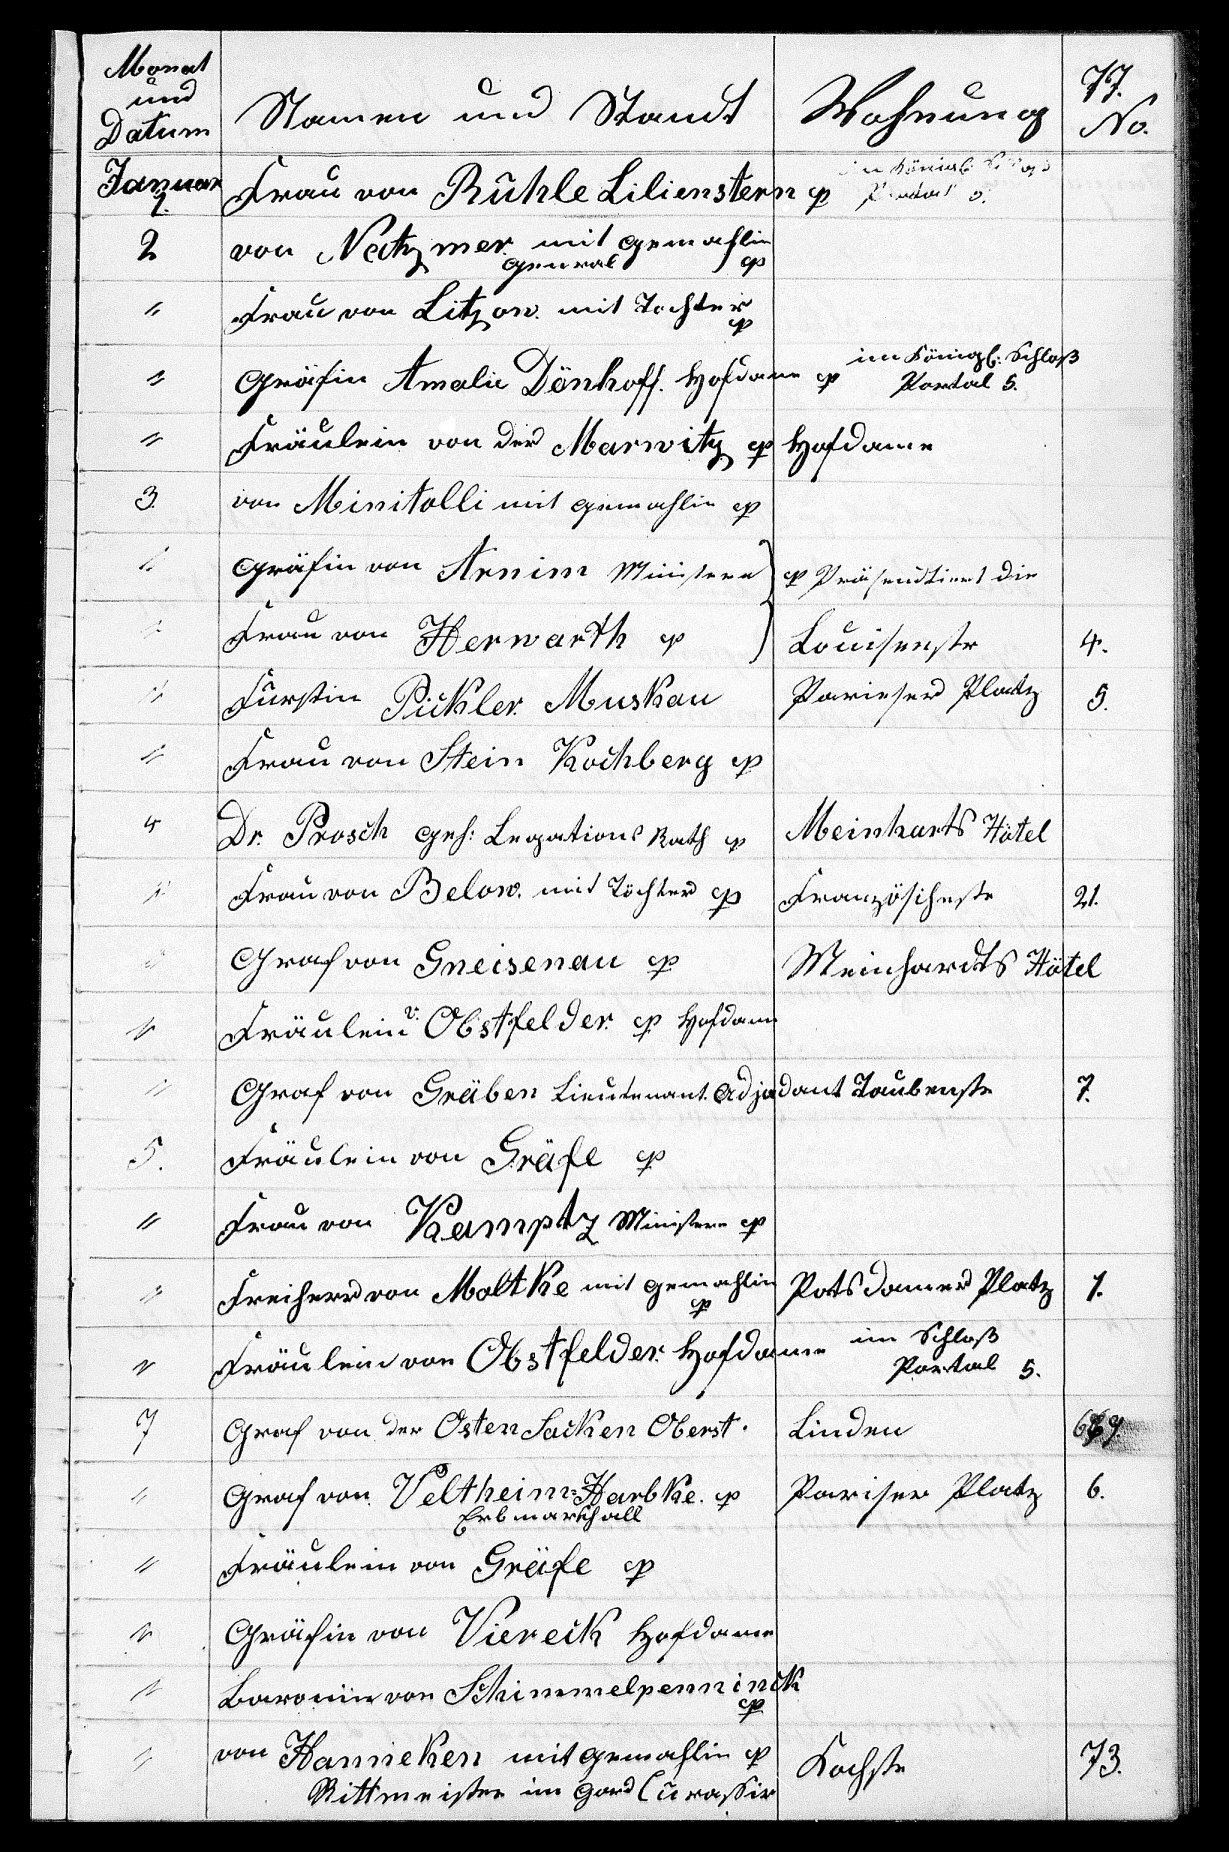 Monat und Datum Namen und Standt Wohnung 77. No.
Januar 1. Frau von Rühle Lilienstern cp im Königl: Schloß Portal 5.
2 von Natzmer mit Gemahlin General cp
" Frau von Litzow. mit Tochter cp
" Gräfin Amalie Dönhoff. Hofdame cp im Königl: Schloß Portal 5.
" Fräulein von der Marwitz cp Hofdame
3. von Minitolli mit Gemahlin cp
" Gräfin von Arnim Ministere cp Präsendtiert die
" Frau von Herwarth cp Louisenstr 4.
" Fürstin Pückler. Muskau Parieser Platz 5.
" Frau von Stein Kochberg cp
4 Dr. Prosch geh: Legations Rath cp Meinharts Hôtel
" Frau von Below. mit Töchter cp Französischestr 21.
" Graf von Gneisenau cp Meinhardts Hôtel
" Fräulein v: Obstfelder. cp Hofdame
" Graf von Gräben Lieutenant. Adjudant Taubenstr 7.
5. Fräulein von Gräfe cp
" Frau von Kamptz Ministere cp
" Freiherr von Moltke mit Gemahlin cp Potsdamer Platz 1.
" Fräulein von Obstfelder. Hofdame im Schloß Portal 5.
7 Graf von der Osten Sacken Oberst. Linden
" Graf von Veltheim=Harbke. cp Erbmarschall Pariser Platz 6.
" Fräulein von Gräfe cp
" Gräfin von Viereck Hofdame
" Baronin von Schimmelpenninck cp
" von Hanneken mit Gemahlin cp Kochstr 73.
Rittmeister im Gard Cürassir